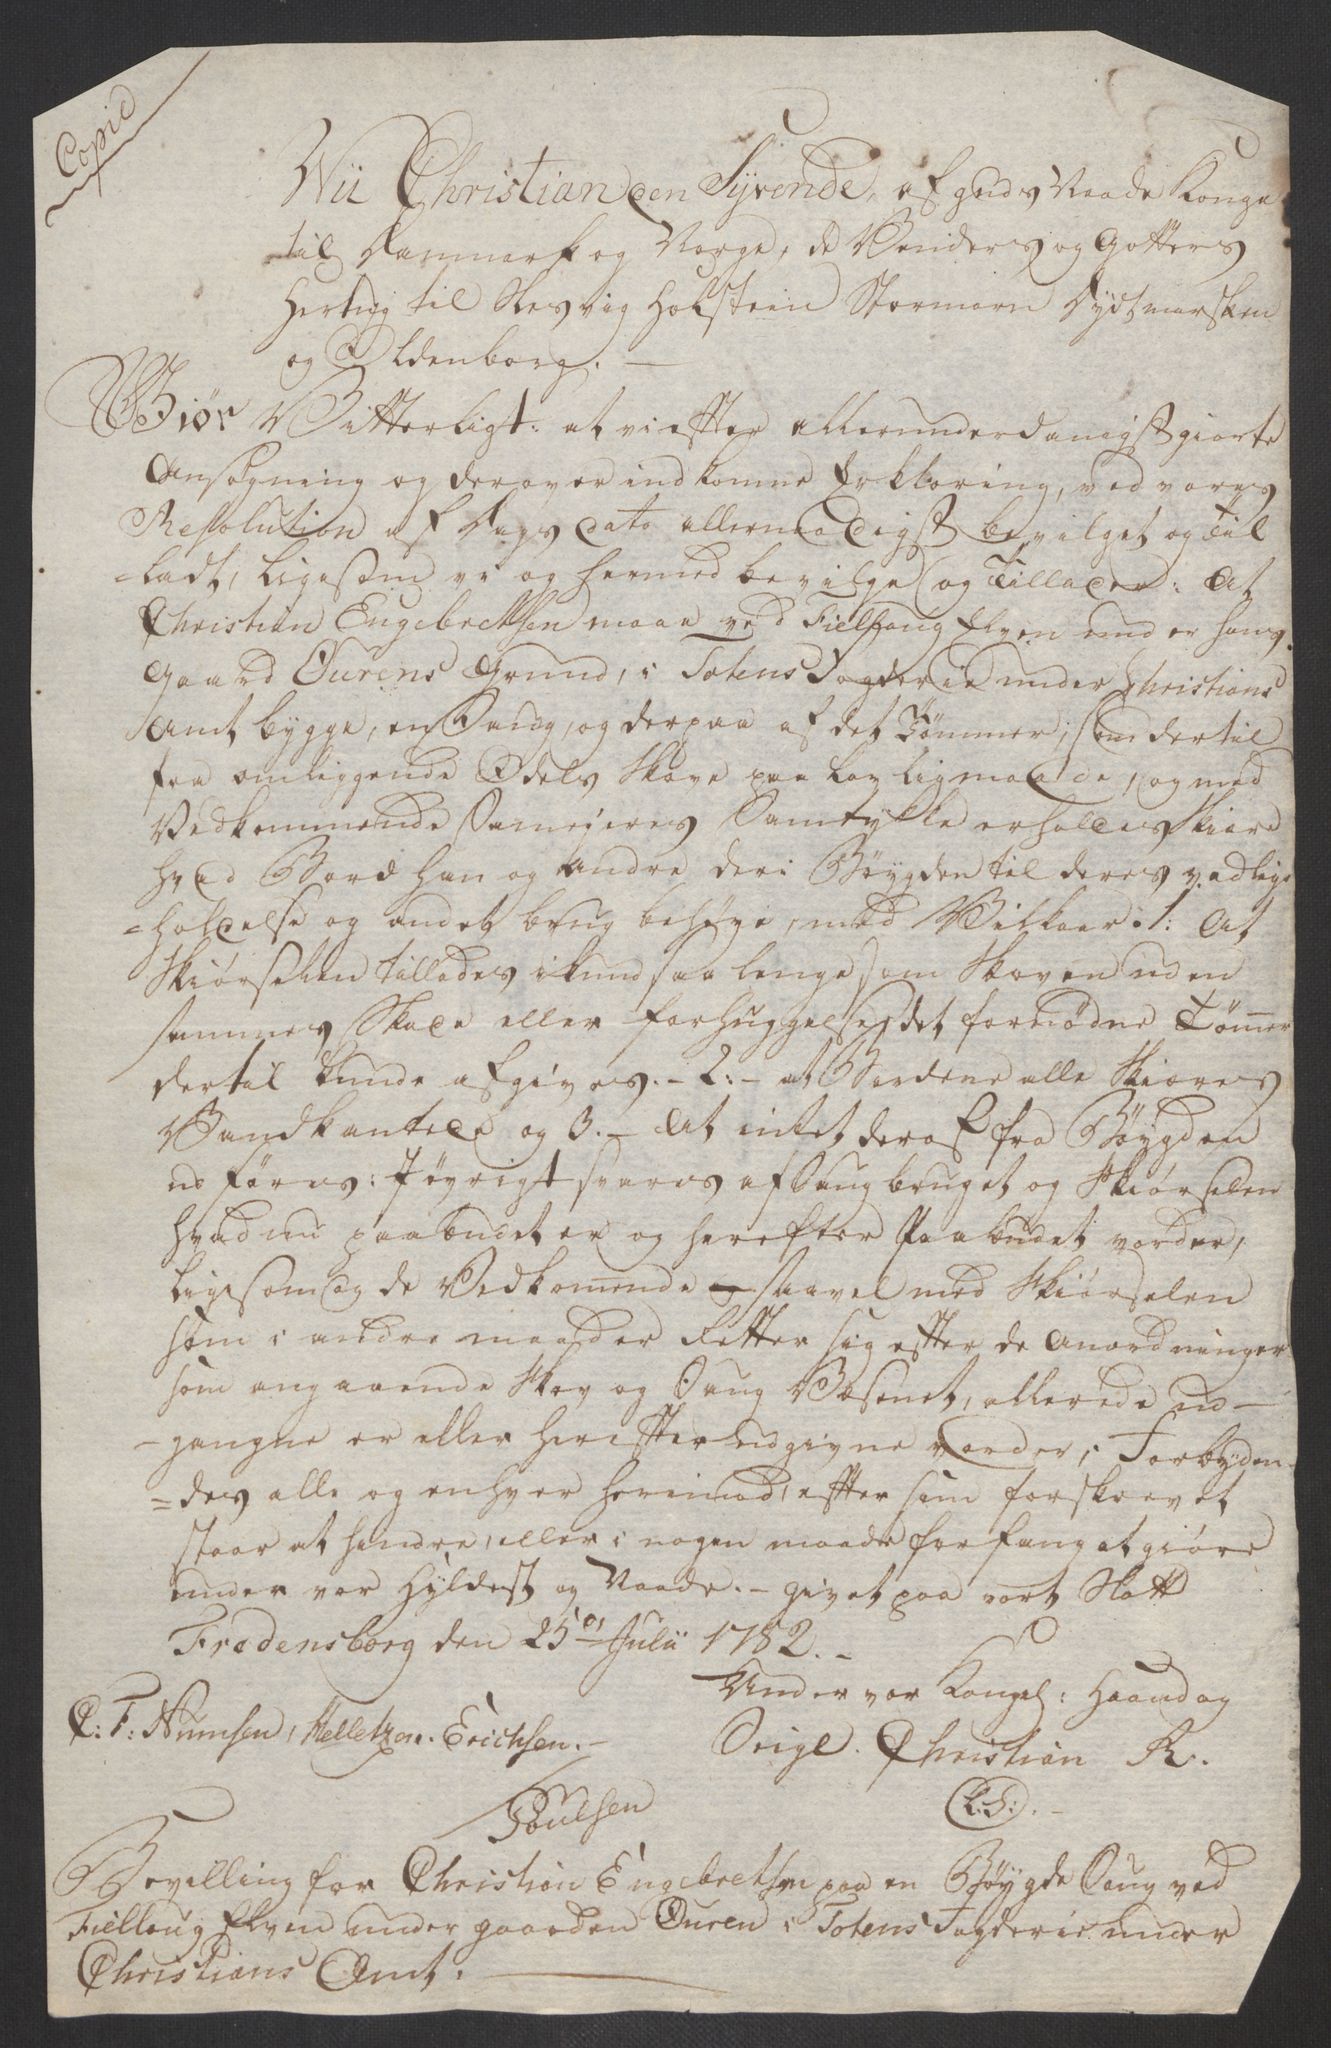 Copie
Wii Christian den Syvende, af Guds Naade Konge
til Danmark og Norge, de Wenders og Gotters
Hertug til Slesvig Holsteen Stormarn Dydtmarsken
og Oldenborg. —
Giør Witterligt: at vi efter allerunderdanigst giorte
Ansøgning og derover indkomne Erklæring, ved vores
Resolution af Dags dato allernaadigst bevilget og til
=ladt, ligesom vi og hermed bevilge og Tillader: At
Christian Engebrethsen maae ved Fielhaug Elven under hans
Gaard Ourens Grund, i Totens Fogderie under Christians
Amt bygge, en Saug, og derpaa af det Tømmer, som dertil
fra omliggende Odels Skove paa lovlig maade, og med
Vedkommende Sameieres Samtykke erholdes, Skiære
hvad Bord han og andre der i Bøygden til deres vedlige
=holdelse og andet brug behøve, med Vilkaar: 1: At
Skiørselen tillades ikund saa lenge som Skoven uden
sammes Skade eller forhuggelse, det fornødne Tømmer
dertil kunde afgives. – 2: – at Bordene alle Skiæres
Vandkantede og 3. – At intet deraf fra Bøygden
udføres: I øvrigt svares af Saugbruget og Skiørselen
hvad nu paabudet er og herefter Paabudet vorder,
ligesom og de Vedkomende – saavel med Skiørselen
som i andre maader Retter sig efter de Anordninger
som angaaende Skov og Saug Væsenet, allerede ud –
– gangne er eller herefter udgivne vorder, Forbyden
=des alle og enhver herimod, efter som forskrevet
staar at hindre, eller i nogen maade forfang at giøre
under vor Hyldest og Naade. – givet paa vort Slott
Fredensborg den 25de Julii 1782. –
Under vor Kongel: Haand og
C: F: Numsen, Helletzen. Erichsen. – Seigl. Christian R.
Poulsen (L:S:). –
Bevilling for Christian Engebrethsen paa en Bøygde Saug ved
Fielhaug Elven under gaarden Ouren i Totens Fogderie under
Christians Amt. —